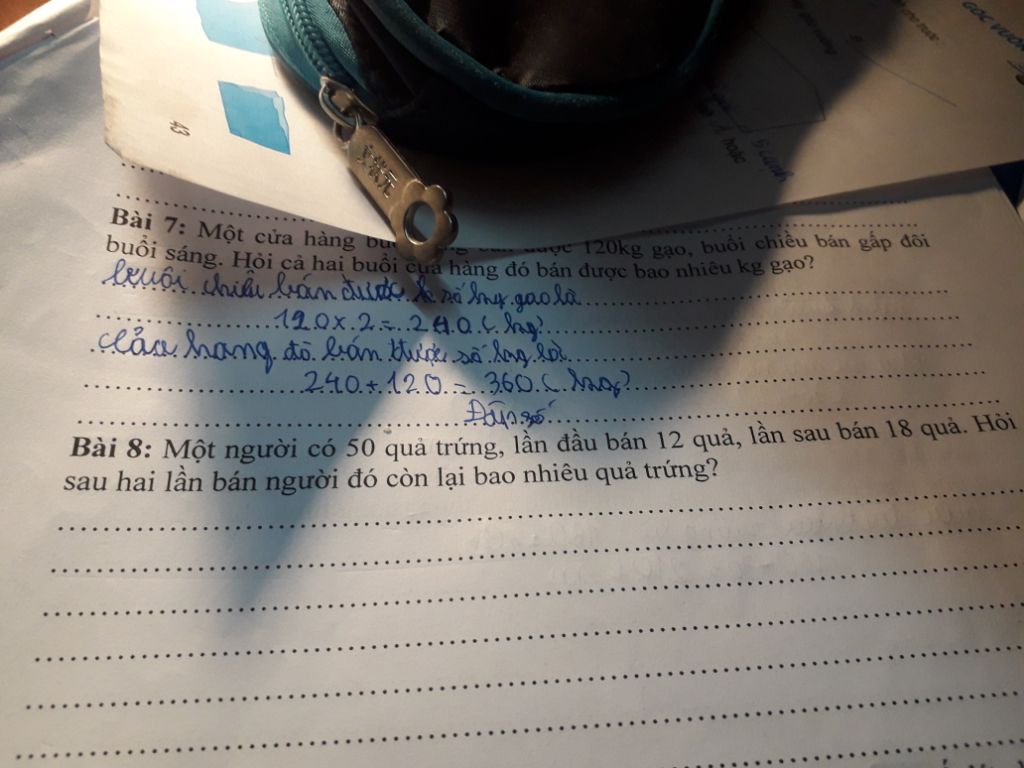 43
GÓC VUÔNG
5 cạnh
Bài 7: Một cửa hàng được 120kg gạo, buổi chiều bán gấp đôi
buổi sáng. Hỏi cả hai buổi cửa hàng đó bán được bao nhiêu kg gạo?
buổi chiều bán được số kg gạo là
120 x 2 = 240 ( kg)
cửa hàng đó bán được số kg là
240 + 120 = 360 ( kg)
Đáp số
Bài 8: Một người có 50 quả trứng, lần đầu bán 12 quả, lần sau bán 18 quả. Hỏi
sau hai lần bán người đó còn lại bao nhiêu quả trứng?